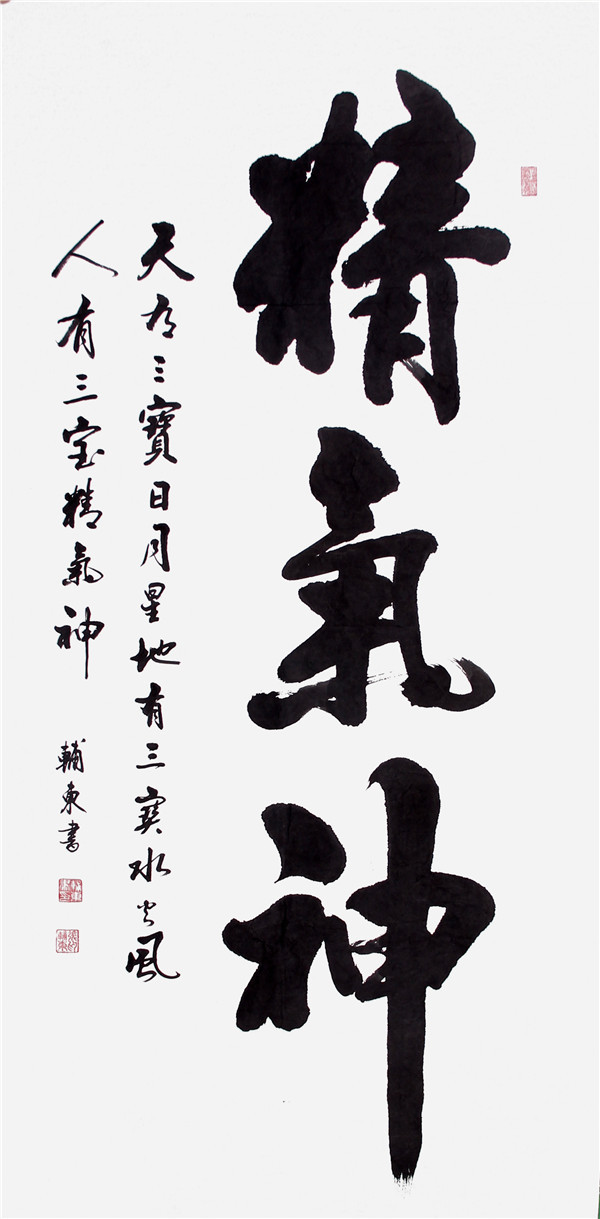 精氣神
天有三寳日月星地有三寳水火風
人有三宝精氣神
輔東書